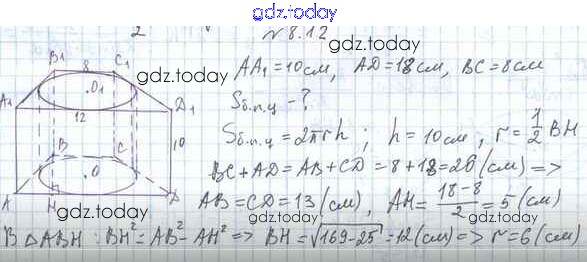 gdz.today
2
№ 8.12
gdz.today
gdz.today
AA₁ = 10 см, AD = 18 см, BC = 8 см
Sб.п.ц - ?
Sб.п.ц = 2πrh ; h = 10 см, r = 1/2 BH
BC + AD = AB + CD = 8 + 18 = 26 (см) =>
AB = CD = 13 (см), AH = (18 - 8)/2 = 5 (см)
В △ABH : BH² = AB² - AH² => BH = √(169 - 25) = 12 (см) => r = 6 (см)
B₁ 8 C₁
O₁
A₁ D₁
12
10
B C
O
A H D
gdz.today
gdz.today
gdz.today
gdz.today
gdz.today